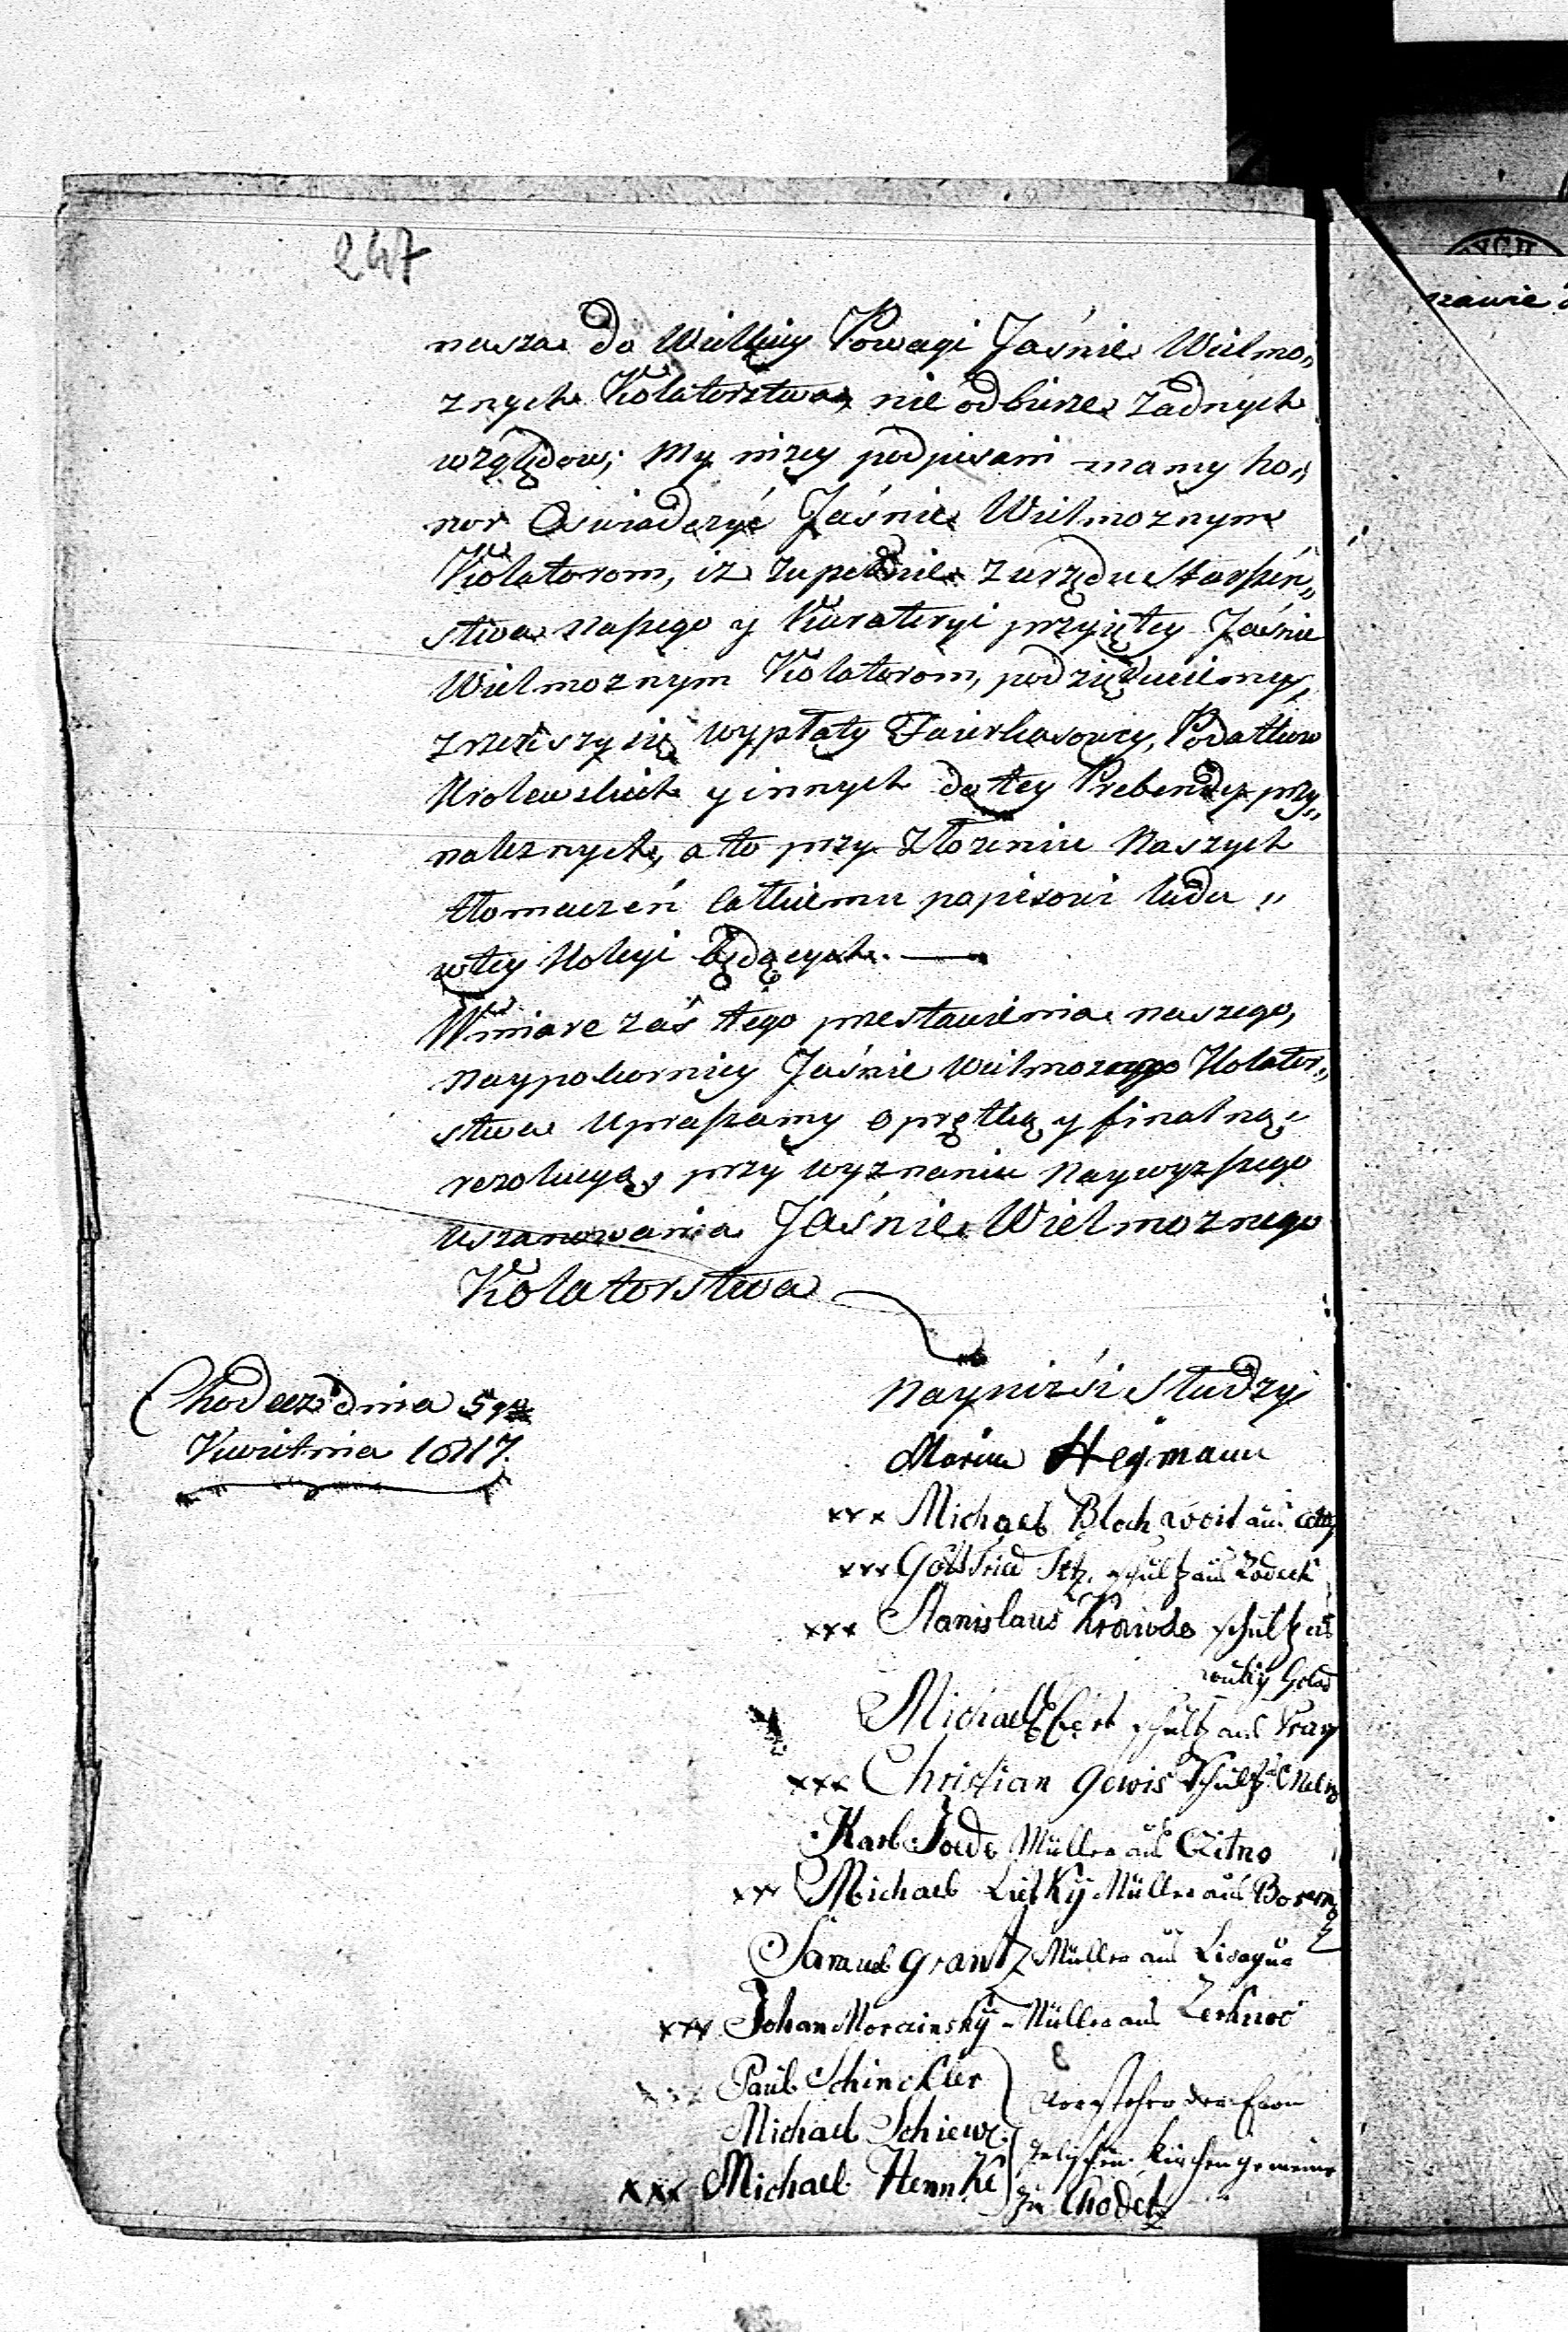 247
nasza do Wielkiey Powagi Jaśnie Wielmo„
znych Kolatorstwa, nie odbierze żadnych
względow; My niżey podpisani mamy ho„
nor Oswiadczyć Jaśnie Wielmoznym
Kolatorom, iż zupełnie z urzędu Starszeń„
stwa naszego y Kuratoryi przyiętey Jaśnie
Wielmoznym Kolatorom, podziękuiemy,
zrzekłszy się wypłaty Faierkasowey, Podatkow
Krolewskich y innych do tey Prebendy przy„
naleznych, a to przy Złożeniu Naszych
tłomaczeń całkiemu popisowi ludu „
w tey Kolegi będących. —
W miare zaś tego przestawienia naszego,
naypokorniey Jaśnie Wielmoznego Kolator„
stwa Upraszamy o prętką y finalną
rezolucyą, przy wyznaniu naywyzszego
uszanowania Jaśnie Wielmoznego
Kolatorstwa
Chodecz dnia 5go
Kwietnia 1817.
Nayniżsi Słudzy
Hegmann
xxx Michael Bloch woit aus
xxx Gottfried schultz aus
xxx Stanislaus Krawde schultz aus
Michael Ebert schultz aus
xxx Christian Gewis Schultz
Karl Jaede Müller aus Czitno
xxx Michael Lietky Müller aus
Samuel Grantz Müller aus
xxx Johan Morainsky Müller aus
xxx Paul Schinckler
Michael Schiewe
xxx Michael Hennke
Vorsteher der Evan
gelischen Kirchengemeine
zu Chodetz